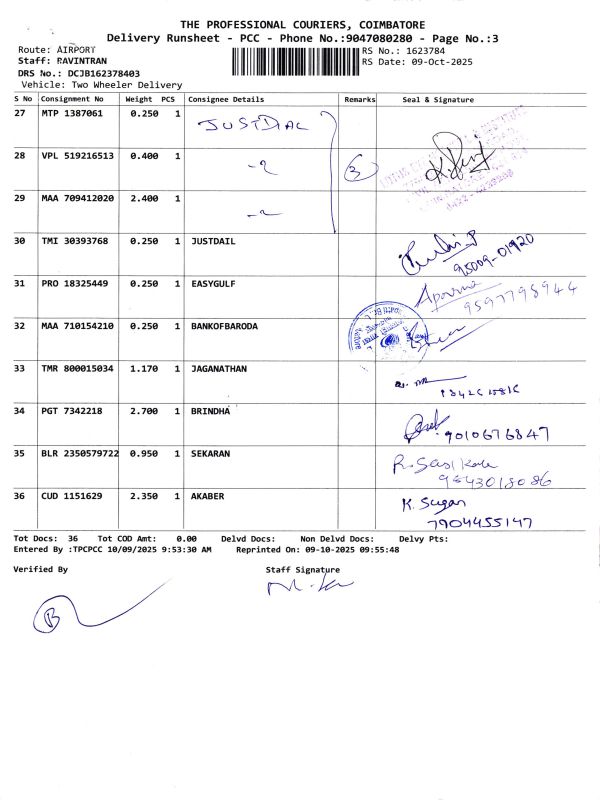 THE PROFESSIONAL COURIERS, COIMBATORE
Delivery Runsheet - PCC - Phone No.:9047080280 - Page No.:3
Route: AIRPORT
RS No.: 1623784
Staff: RAVINTRAN
RS Date: 09-Oct-2025
DRS No.: DCJB162378403
Vehicle: Two Wheeler Delivery
S No Consignment No Weight PCS Consignee Details Remarks Seal & Signature
27 MTP 1387061 0.250 1 JUSTDIAL
28 VPL 519216513 0.400 1 3
29 MAA 709412020 2.400 1
30 TMI 30393768 0.250 1 JUSTDAIL
95009-01920
31 PRO 18325449 0.250 1 EASYGULF Aparna
9597798944
32 MAA 710154210 0.250 1 BANKOFBARODA
33 TMR 800015034 1.170 1 JAGANATHAN
34 PGT 7342218 2.700 1 BRINDHA
9010676847
35 BLR 2350579722 0.950 1 SEKARAN R. Sasikala
36 CUD 1151629 2.350 1 AKABER K. Sugan
7904455147
Tot Docs: 36 Tot COD Amt: 0.00 Delvd Docs: Non Delvd Docs: Delvy Pts:
Entered By :TPCPCC 10/09/2025 9:53:30 AM Reprinted On: 09-10-2025 09:55:48
Verified By Staff Signature
B